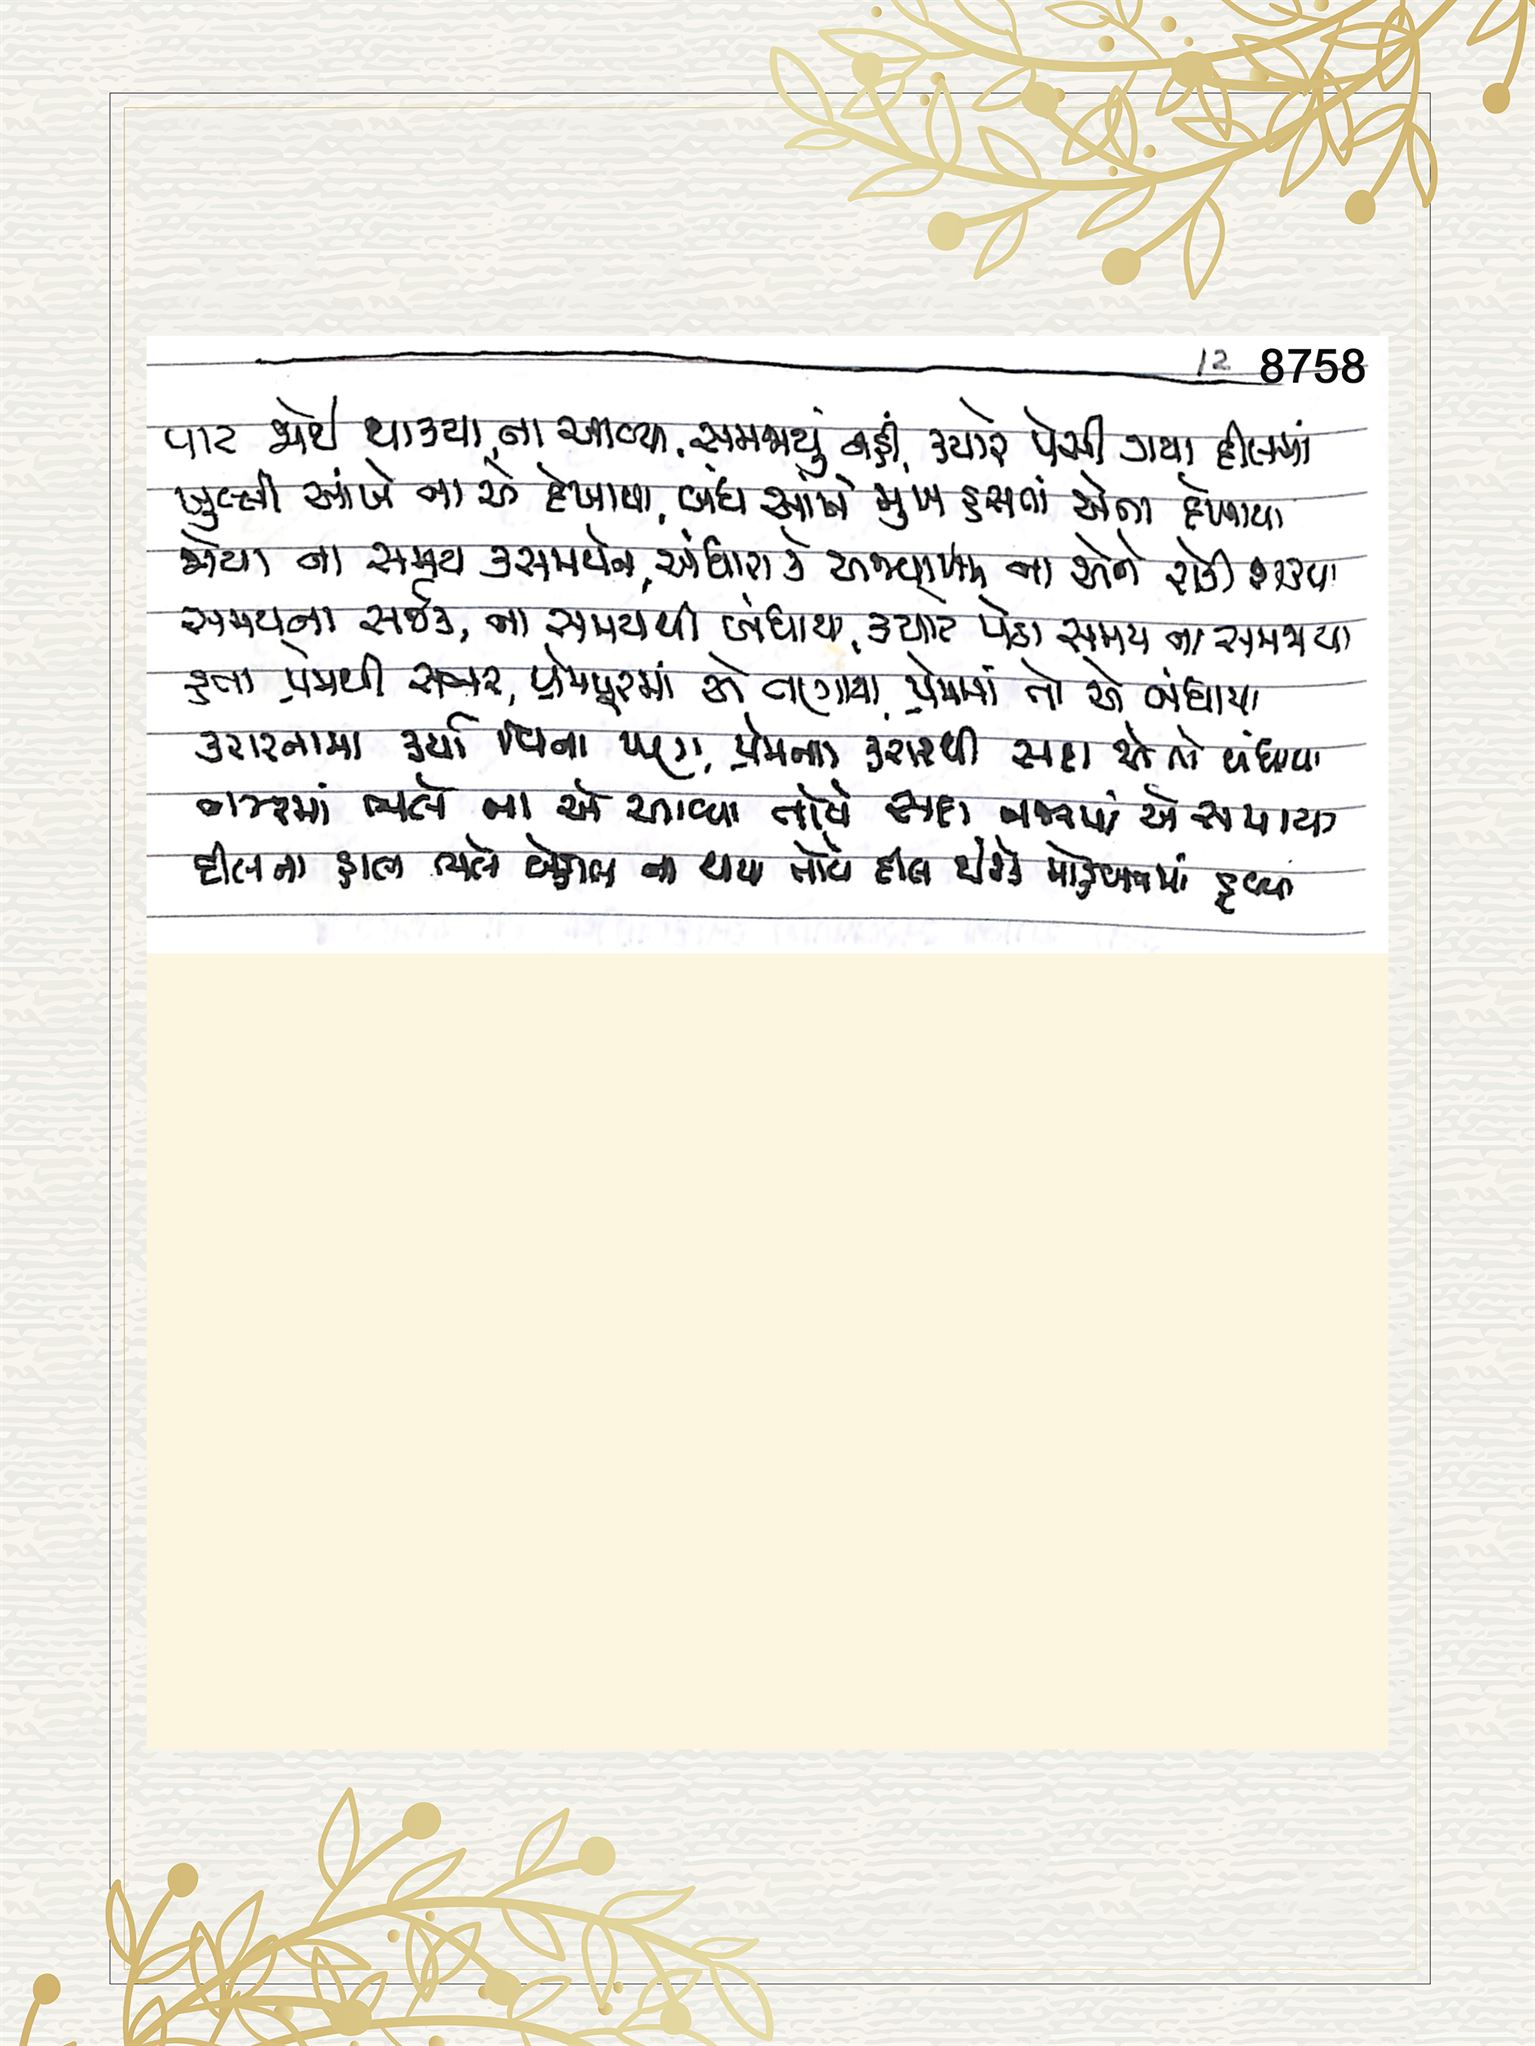 12 8758
વાટ જોઈ થાક્યા, ના આવ્યા, સમજાયું નહીં, ક્યારે પેસી ગયા દીલમાં
ખુલ્લી આંખે ના એ દેખાયા, બંધ આંખે મુખ હસતાં એના દેખાયા
જોયા ના સમય કસમયેન, અંધારા કે અજવાળા ના એને રોકી શક્યા
સમયના સર્જક, ના સમયથી બંધાયા, ક્યારે પેઠા સમય ના સમજાયા
હતા પ્રેમથી સભર, પ્રેમપૂરમાં એ તણાયા, પ્રેમમાં તો એ બંધાયા
કરારનામા કર્યા વિના પણ, પ્રેમના કરારથી સદા એ તો બંધાયા
નજરમાં ભલે ના એ આવ્યા તોયે સદા નજરમાં એ સમાયા
દીલના હાલ ભલે બેહાલ ના થાય તોયે દીલ એને મોહબતમાં